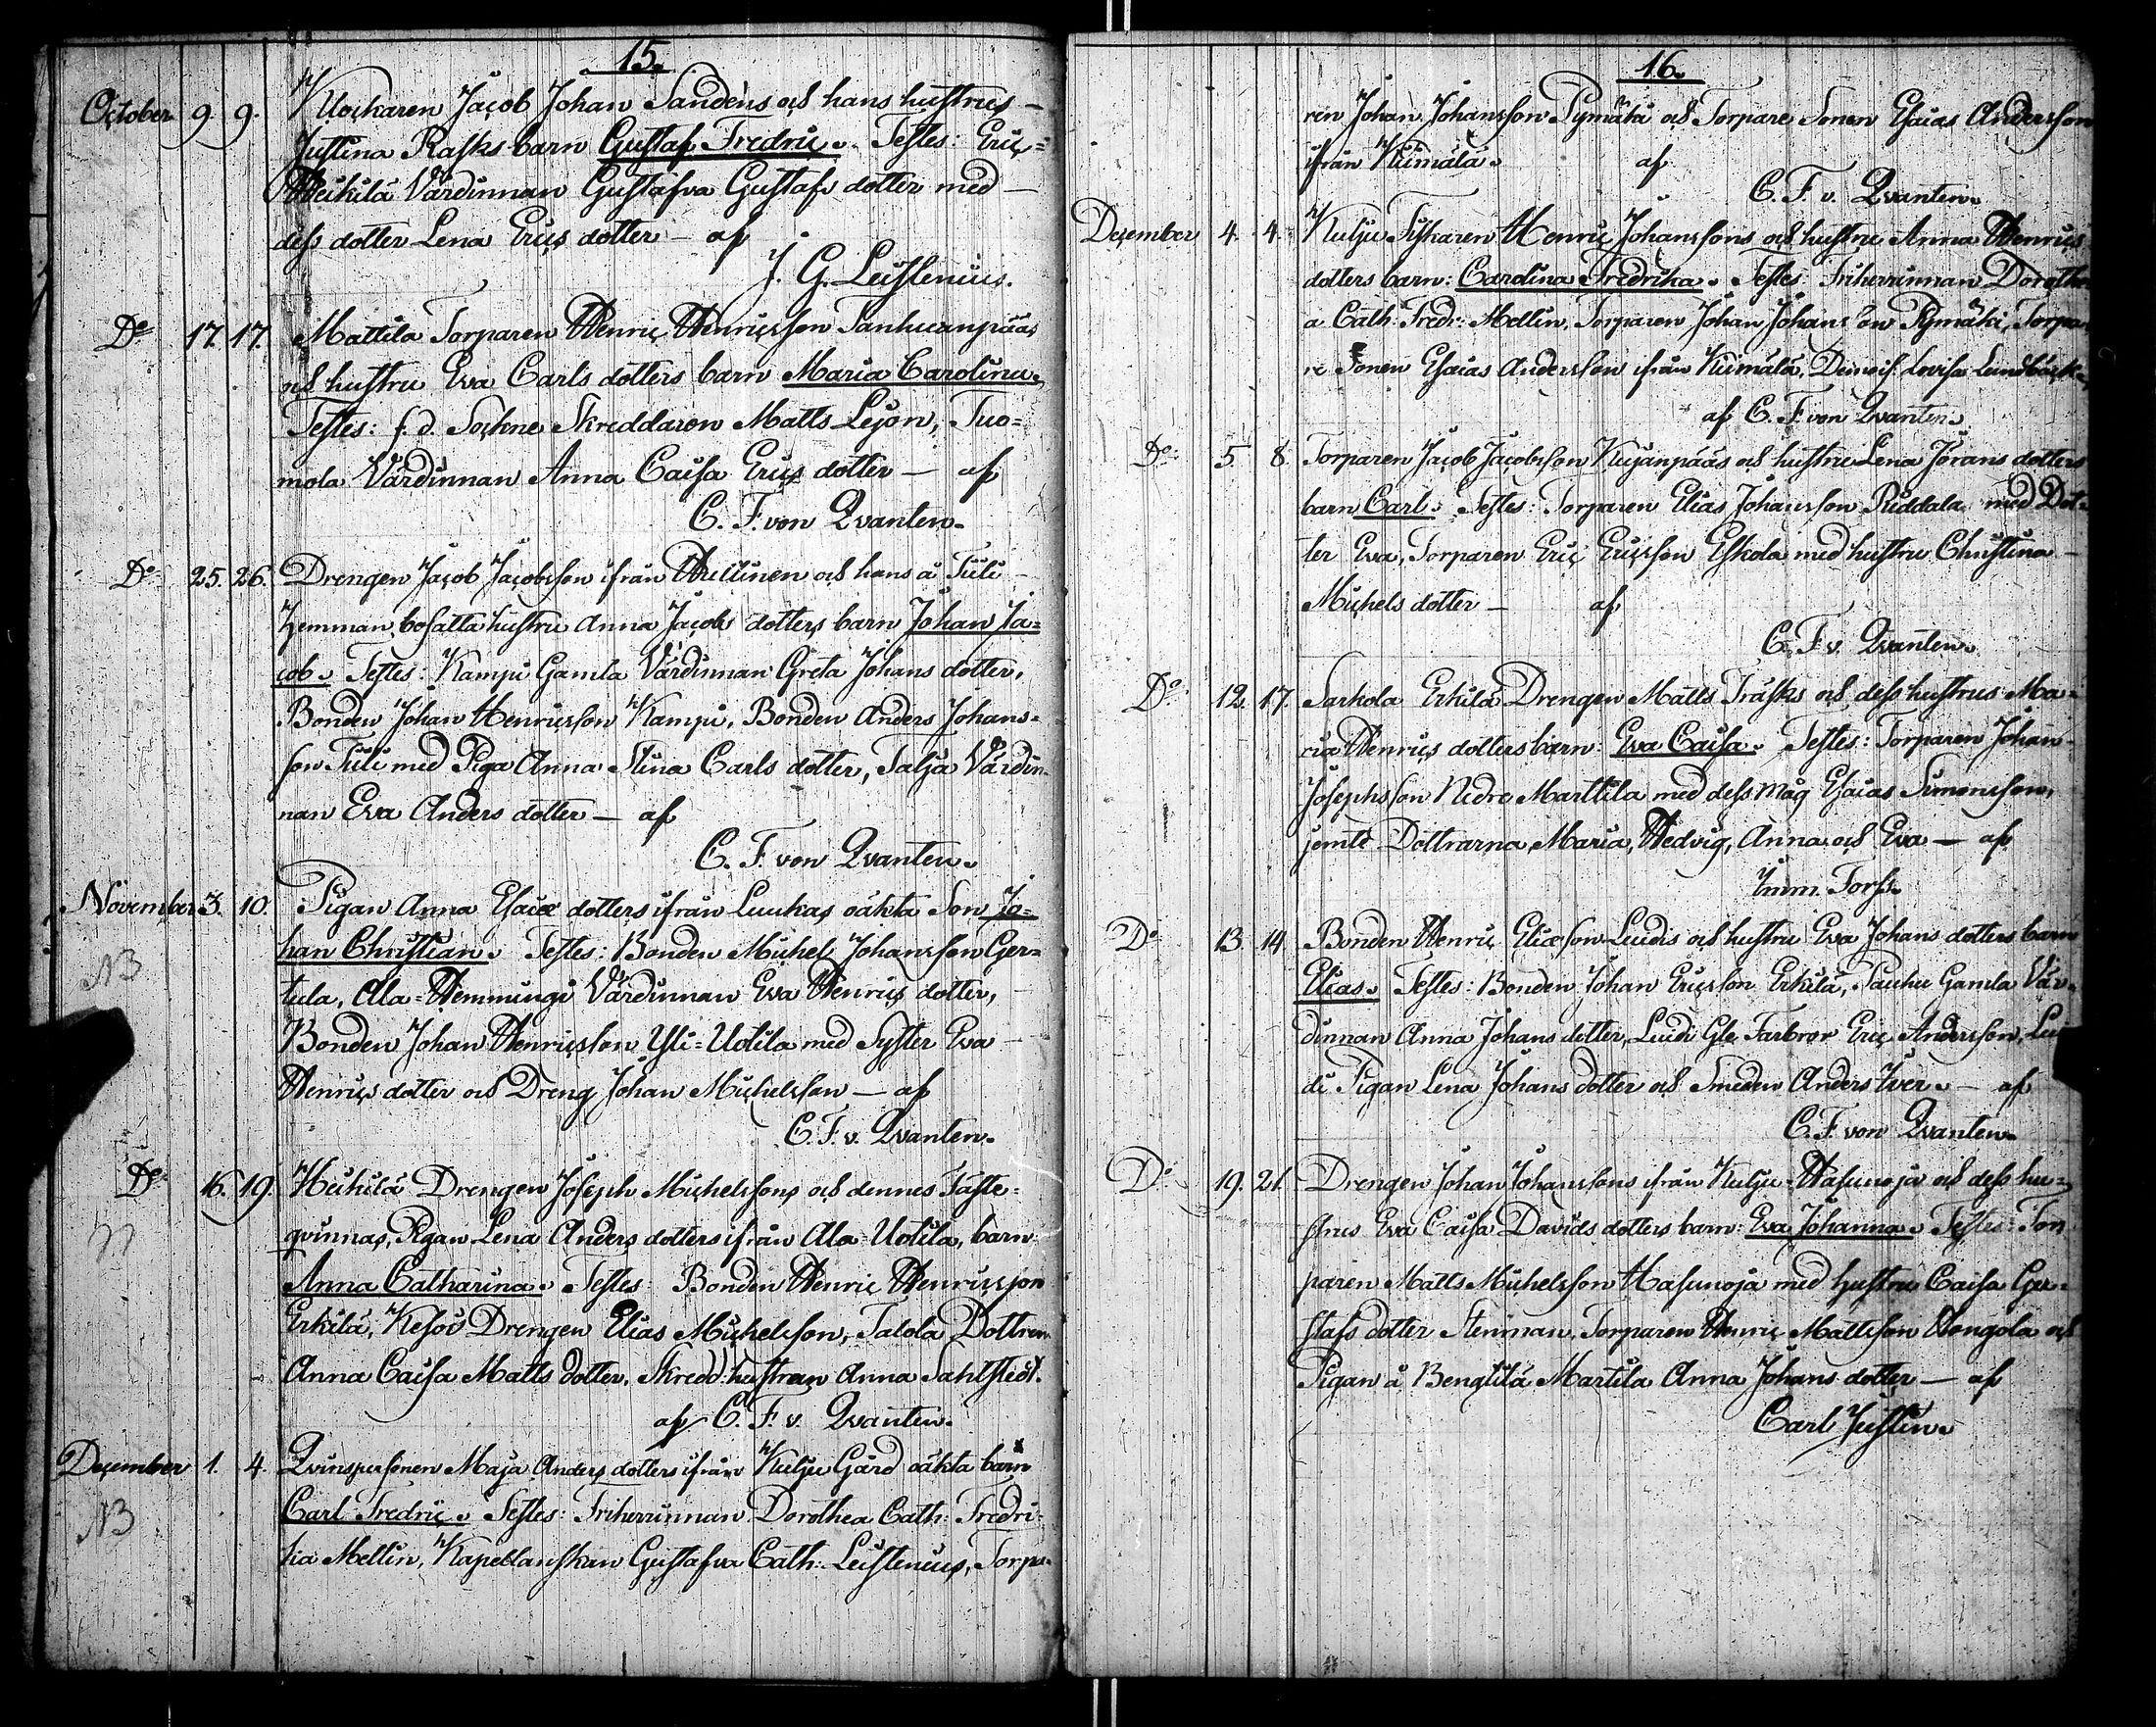 15.
October 9. 9. Klockaren Jacob Johan Sandéns och hans hustrus
Justina Rasks barn Gustaf Fredric. Testes: Eric
Heikilä Värdinnan Gustafva Gustafs dotter med
dess dotter Lena Erics dotter — af
J. G. Leistenius.
Do 17. 17. Mattila Torparen Henric Henricsson Tanhuanpääs
och hustru Eva Carls dotters barn Maria Carolina.
Testes: f. d. Sockne Skreddaren Matts Lejon, Tuo=
mola Värdinnan Anna Caisa Erics dotter — af
C. F. von Qvanten.
Do 25. 26. Drengen Jacob Jacobsson ifrån Huitinen och hans å Tuli
Hemman bosatta hustru Anna Jacobs dotters barn Johan Ja=
cob. Testes: Kampi Gamla Värdinnan Greta Johans dotter,
Bonden Johan Henricsson Kampi, Bonden Anders Johans=
son Tuli med Piga Anna Stina Carls dotter, Talja Värdin=
nan Eva Anders dotter — af
C. F. von Qvanten.
November 3. 10. Pigan Anna Esaiæ dotters ifrån Luukas oäkta Son Jo=
NB
han Christian. Testes: Bonden Michel Johansson Ger=
tula, Ala=Hemmingi Värdinnan Eva Henrics dotter,
Bonden Johan Henricsson Yli=Uotila med Syster Eva
Henrics dotter och Dreng Johan Michelsson — af
C. F. v. Qvanten.
Do 16. 19. Heikilä Drengen Joseph Michelssons och dennes Fäste=
qvinnas, Pigan Lena Anders dotters ifrån Ala=Uotila, barn
Anna Catharina. Testes: Bonden Henric Henricsson
Erkilä, Kesoi Drengen Elias Michelsson, Talola Dottren
Anna Caisa Matts dotter, Skredd: hustrun Anna Sahlstedt.
af C. F. v. Qvanten.
December 1. 4. Qvinspersonen Maja Anders dotters ifrån Kulju Gård oäkta barn
NB
Carl Fredric. Testes: Friherrinnan Dorothea Cath: Fredri=
sia Mellin, Kapellanskan Gustafva Cath: Leistenius, Torpa=
16.
ren Johan Johansson Pymäki och Torpare Sonen Esaias Andersson
ifrån Kiimälä. af
C. F. v. Qvanten.
December 4. 4. Kulju Fiskaren Henric Johanssons och hustru Anna Henrics
dotters barn: Carolina Fredrika. Testes: Friherrinnan Dorothe=
a Cath: Fredr: Mellin, Torparen Johan Johansson Pymäki, Torpa=
re Sonen Esaias Andersson ifrån Kiimälä, Demois: Lovisa Lundbäck.
af C. F. von Qvanten.
Do 5. 8. Torparen Jacob Jacobsson Kujanpääs och hustru Lena Jörans dotters
barn Carl. Testes: Torparen Elias Johansson Riddala med Dot=
ter Eva, Torparen Eric Ericsson Eskola med hustru Christina
Michels dotter — af
C. F. v. Qvanten.
Do 12. 17. Sarkola Erkilä Drengen Matts Träsks och dess hustrus Ma=
ria Henrics dotters barn: Eva Caisa. Testes: Torparen Johan
Josephsson Nedre Marttila med dess måg Esaias Simonsson,
jemte Dottrarna Maria, Hedvig, Anna och Eva — af
Imm. Forss.
Do 13. 14 Bonden Henric Eliæson Luidis och hustru Eva Johans dotters barn
Elias. Testes: Bonden Johan Ericsson Erkilä, Pauhu Gamla Vär=
dinnan Anna Johans dotter, Luidi Gle Farbror Eric Andersson, Lui
di Pigan Lena Johans dotter och Smeden Anders Iver. — af
C. F. von Qvanten.
Do 19. 21. Drengen Johan Johanssons ifrån Kulju=Hasunoja och dess hu=
strus Eva Caisa Davids dotters barn: Eva Johanna. Testes: Tor
paren Matts Michelsson Hasunoja med hustru Caisa Gu=
stafs dotter Stenman, Torparen Henric Mattsson Hongola och
Pigan å Bengtilä Martila Anna Johans dotter — af
Carl Justin.